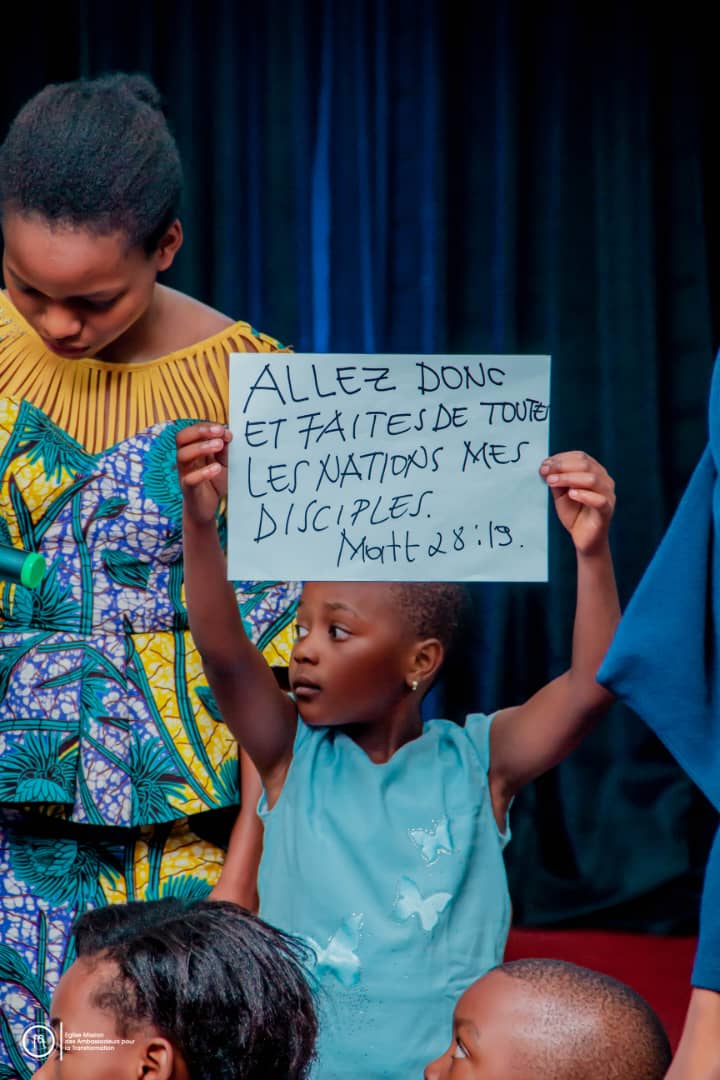 ALLEZ DONC
ET FAITES DE TOUTE
LES NATIONS MES
DISCIPLES.
Matt 28:19.
Eglise Mission
des Ambassadeurs pour
la Transformation